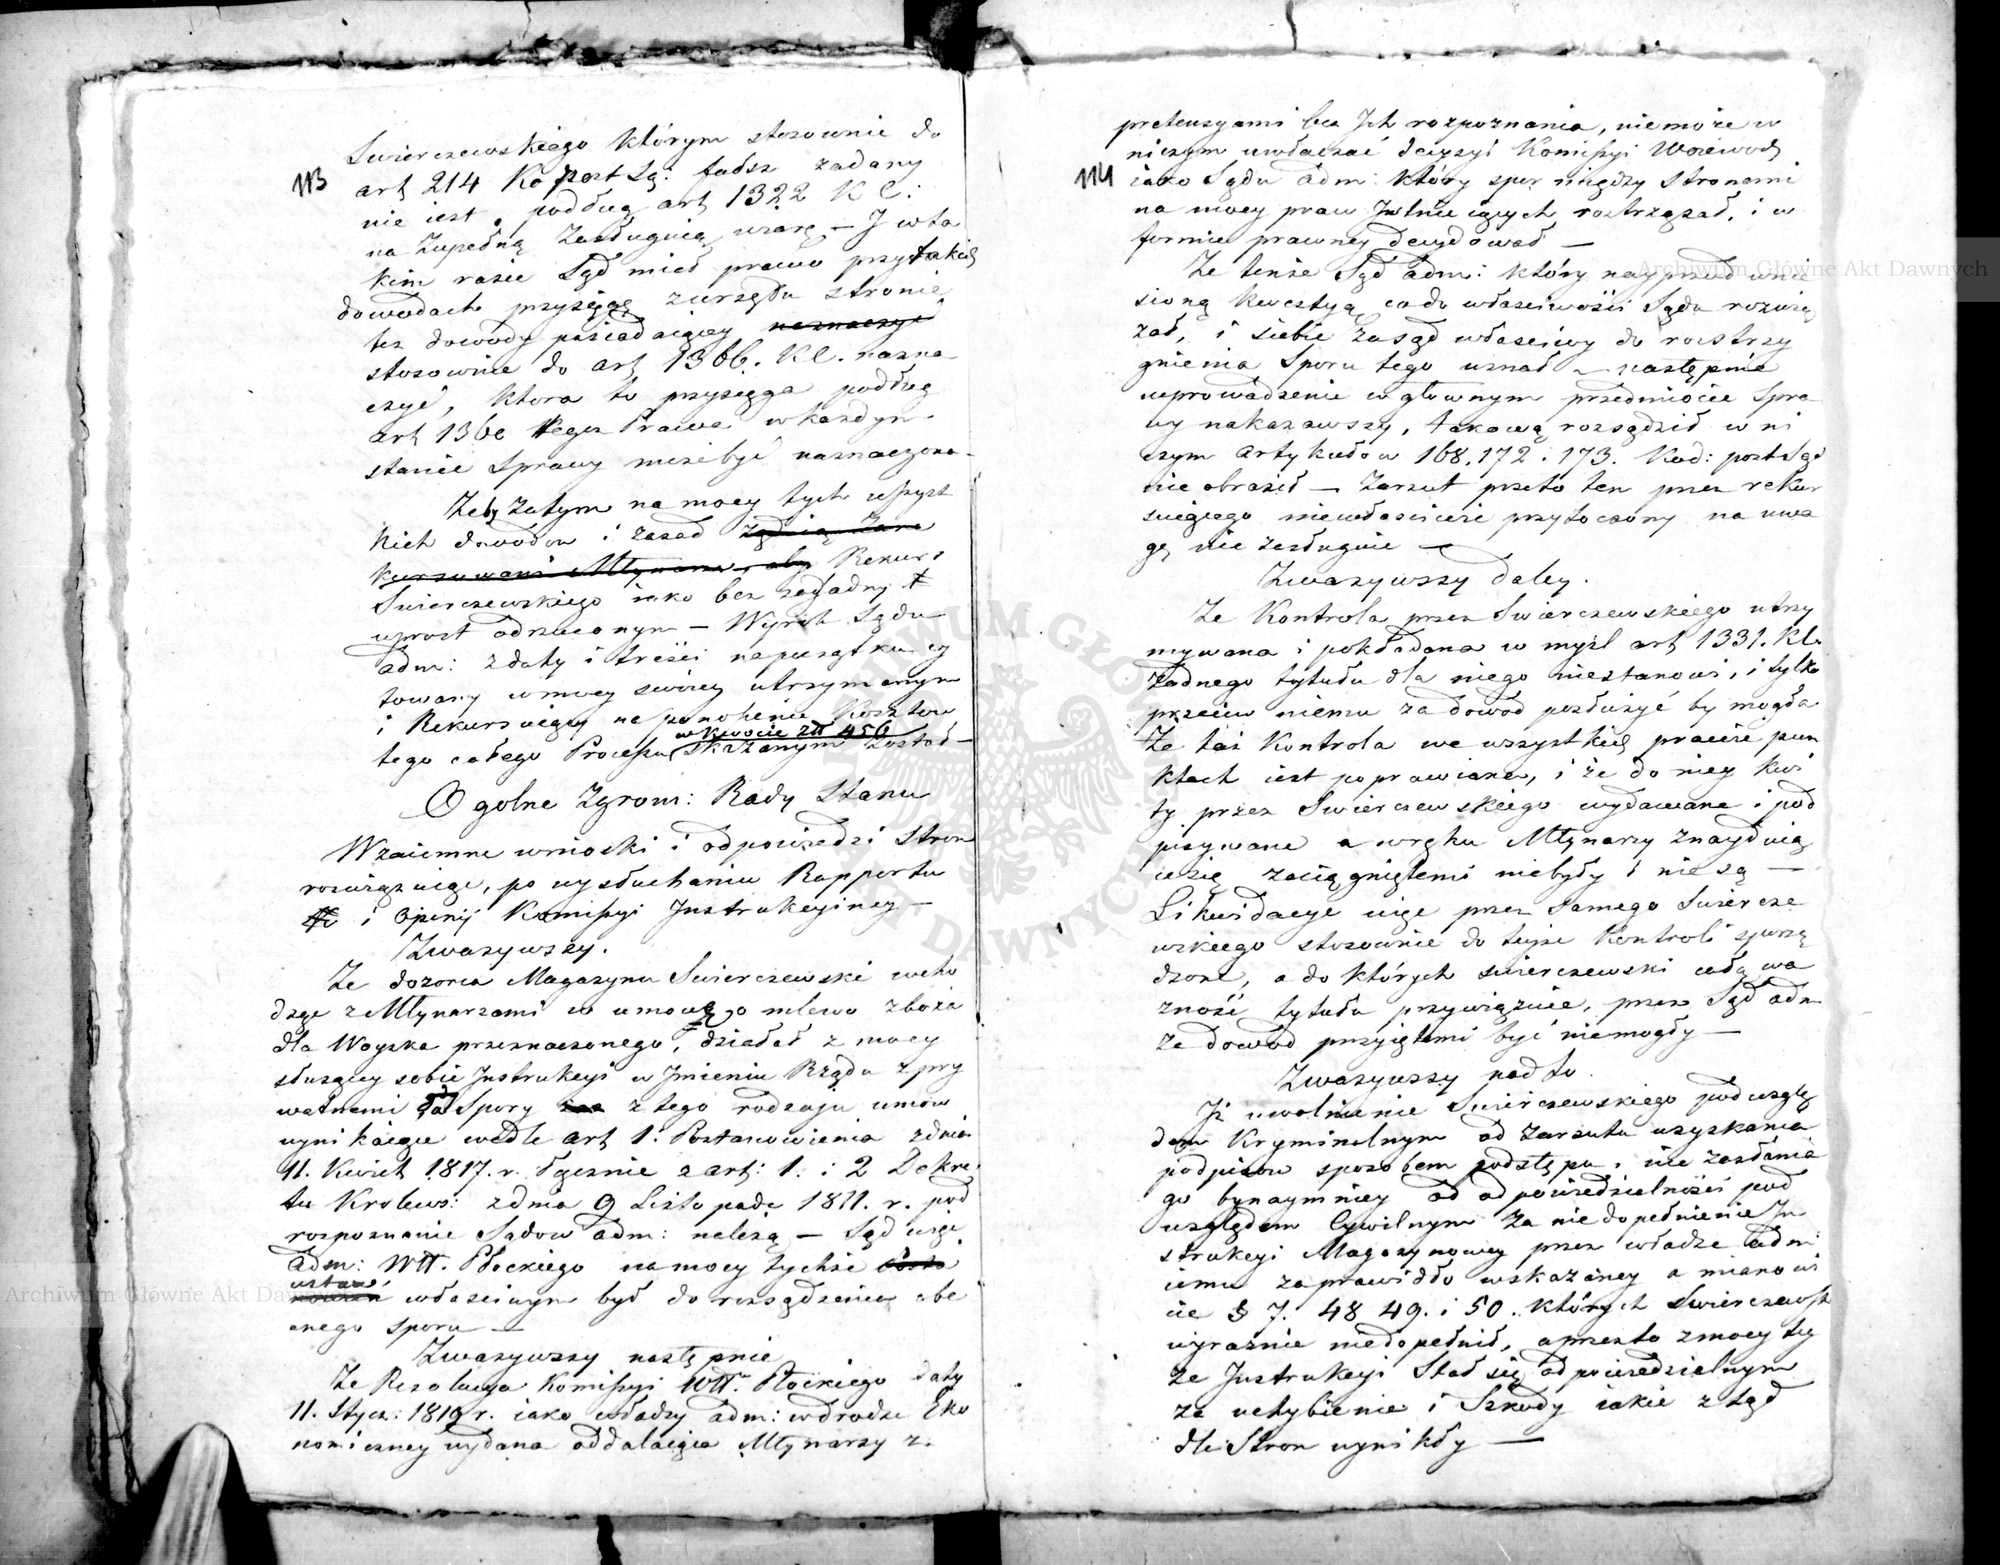 113
Swierczewskiego którym stosownie do
art 214 Ko post Są: fałsz zadany
nie iest, podług art 1322 K C:
na zupełną zasługuią wiarę – I w ta
kim razie Sąd miał prawo przy takich
dowodach przysięgę z urzędu stronie
tez dowody posiadaiącey naznaczyć
stosownie do art 1366. K C. nazna
czyć, ktora to przysięga podług
art 1360 tegoz Prawa w kazdym
stanie sprawy może być naznaczona –
Zeby zatym na mocy tych wszyst
kich dowodów i zasad żądaią
Młynarze, aby Rekurs
Swierczewskiego iako bez zasadny
wprost odrzuconym – Wyrok Sądu
adm: z daty i treści na początku cy
towany w mocy swoiey utrzymanym
i Rekursuiący na ponohenie Kosztow
w kwocie złł 456
tego całego Processu skazanym został –
Ogolne Zgrom: Rady Stanu
Wzaiemne wnioski i odpowiedzi Stron
rozwiązuiąc, po wysłuchaniu Rapportu
i Opinij Komissyi Instrukcyiney –
Zwazywszy.
Ze dozorca Magazynu Swierczewski wcho
dząc z Młynarzami w umowę o mlewo zboża
dla Woyska przeznaczonego, działał z mocy
słuzącey sobie Instrukcyi w Imieniu Rządu z pry
watnemi Spory z tego rodzaju umów
wynikaiące wedle art 1: Postanowienia z dnia
11. Kwiet 1817. r. łącznie z art: 1. i 2 Dekre
tu Krolews: z dnia 9 Listopada 1811. r. pod
rozpoznanie Sądow adm: należą – Sąd więc
adm: Wtt. Płockiego na mocy tychże
ustaw właściwym był do rozsądzenia obe
cnego sporu –
Zwazywszy następnie
Ze Rezolucya Komissyi Wtt. Płockiego daty
11. Stycz: 1819 r. iako władzy adm: w drodze Eko
nomiczney wydana oddalaiąca Młynarzy z
114
pretensyami bez Ich rozpoznania, nie może w
niczym uwłaczać decyzyi Komissyi Woiewodz
iako Sądu adm: który spor między stronami
na mocy praw Istnieiących roztrząsał, i w
formie prawney decydował –
Ze tenże Sąd adm: który nayprzod wnie
sioną kwestyą co do właściwości Sądu rozwią
zał, i siebie za sąd właściwy do rozstrzy
gnienia Sporu tego uznał – następnie
wprowadzenie w głownym przedmiocie Spra
wy nakazawszy, takową rozsądził w ni
czym Artykułow 168. 172. i 173. Kod: post Sąd
nie obraził – Zarzut przeto ten przez rekur
suiącego niewłaściwie przytoczony na uwa
gę nie zasługuie –
Zwazywszy daley.
Ze Kontrola przez Swierczewskiego utrzy
mywana i pokładana w myśl art 1331. K C.
żadnego tytułu dla niego niestanowi, i tylko
przeciw niemu za dowod posłużyć by mogła
Ze taż Kontrola we wszystkich prawie pun
ktach iest poprawiana, i że do niey Kwi
ty przez Swierczewskiego wydawane i pod
pisywane a w ręku Młynarzy znayduią
ce się zaciągniętemi niebyły i nie są –
Likwidacye więc przez samego Swiercze
wskiego stosownie do teyże Kontroli sporzą
dzone, a do których Swierczewski całą wa
żność tytułu przywięzuie, przez Sąd adm
za dowod przyiętemi być niemogły –
Zwazywszy nadto.
Iż uwolnienie Swierczewskiego pod wzglę
dem Kryminalnym od zarzutu uzyskania
podpisow sposobem podstępu, nie zasłania
go bynaymniey od odpowiedzialności pod
względem Cywilnym za niedopełnienie In
strukcyi Magazynowey przez władze adm:
iemu za prawidło wskazaney a mianowi
cie § 7. 48 49. i 50. których Swierczewsk
wyraźnie niedopełnił, a przez to z mocy tey
że Instrukcyi Stał się odpowiedzialnym
za uchybienie i Szkody iakie z tąd
dla Stron wynikły –
Archiwum Główne Akt Dawnych
Archiwum Główne Akt Dawnych
ARCHIWUM GŁÓWNE AKT DAWNYCH